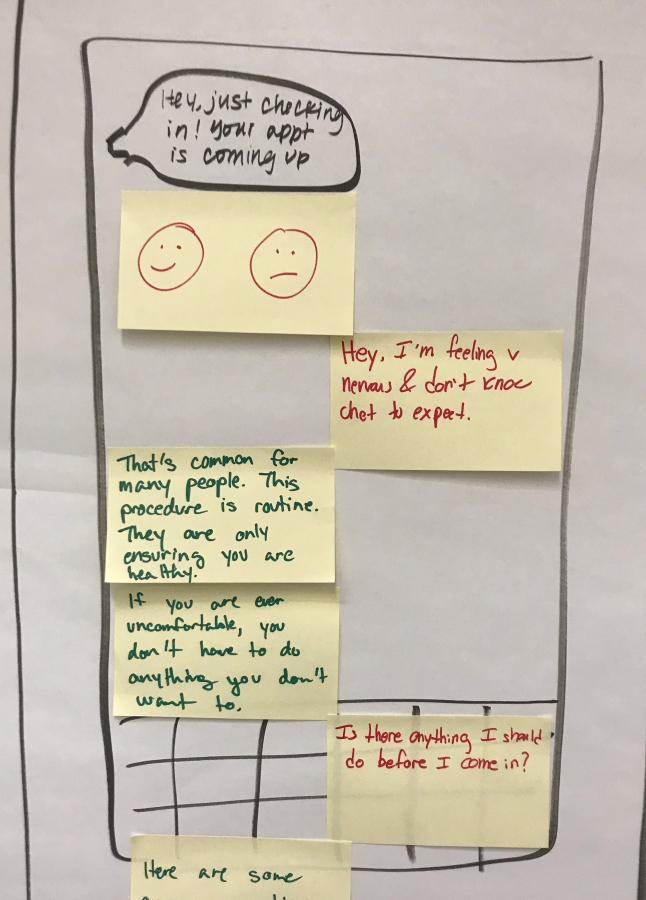 Hey, just checking
in! Your appt
is coming up
Hey, I'm feeling v
nervous & don't know
what to expect.
That's common for
many people. This
procedure is routine.
They are only
ensuring you are
healthy.
If you are ever
uncomfortable, you
don't have to do
anything you don't
want to.
Is there anything I should
do before I come in?
Here are some